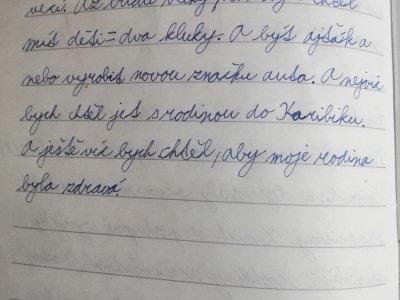 věcí. Až budu velký
mít děti = dva kluky. A být ajťák a
nebo vyrobit novou značku auta. A nejvíc
bych chtěl jet s rodinou do Karibiku.
A ještě víc bych chtěl, aby moje rodina
byla zdravá.